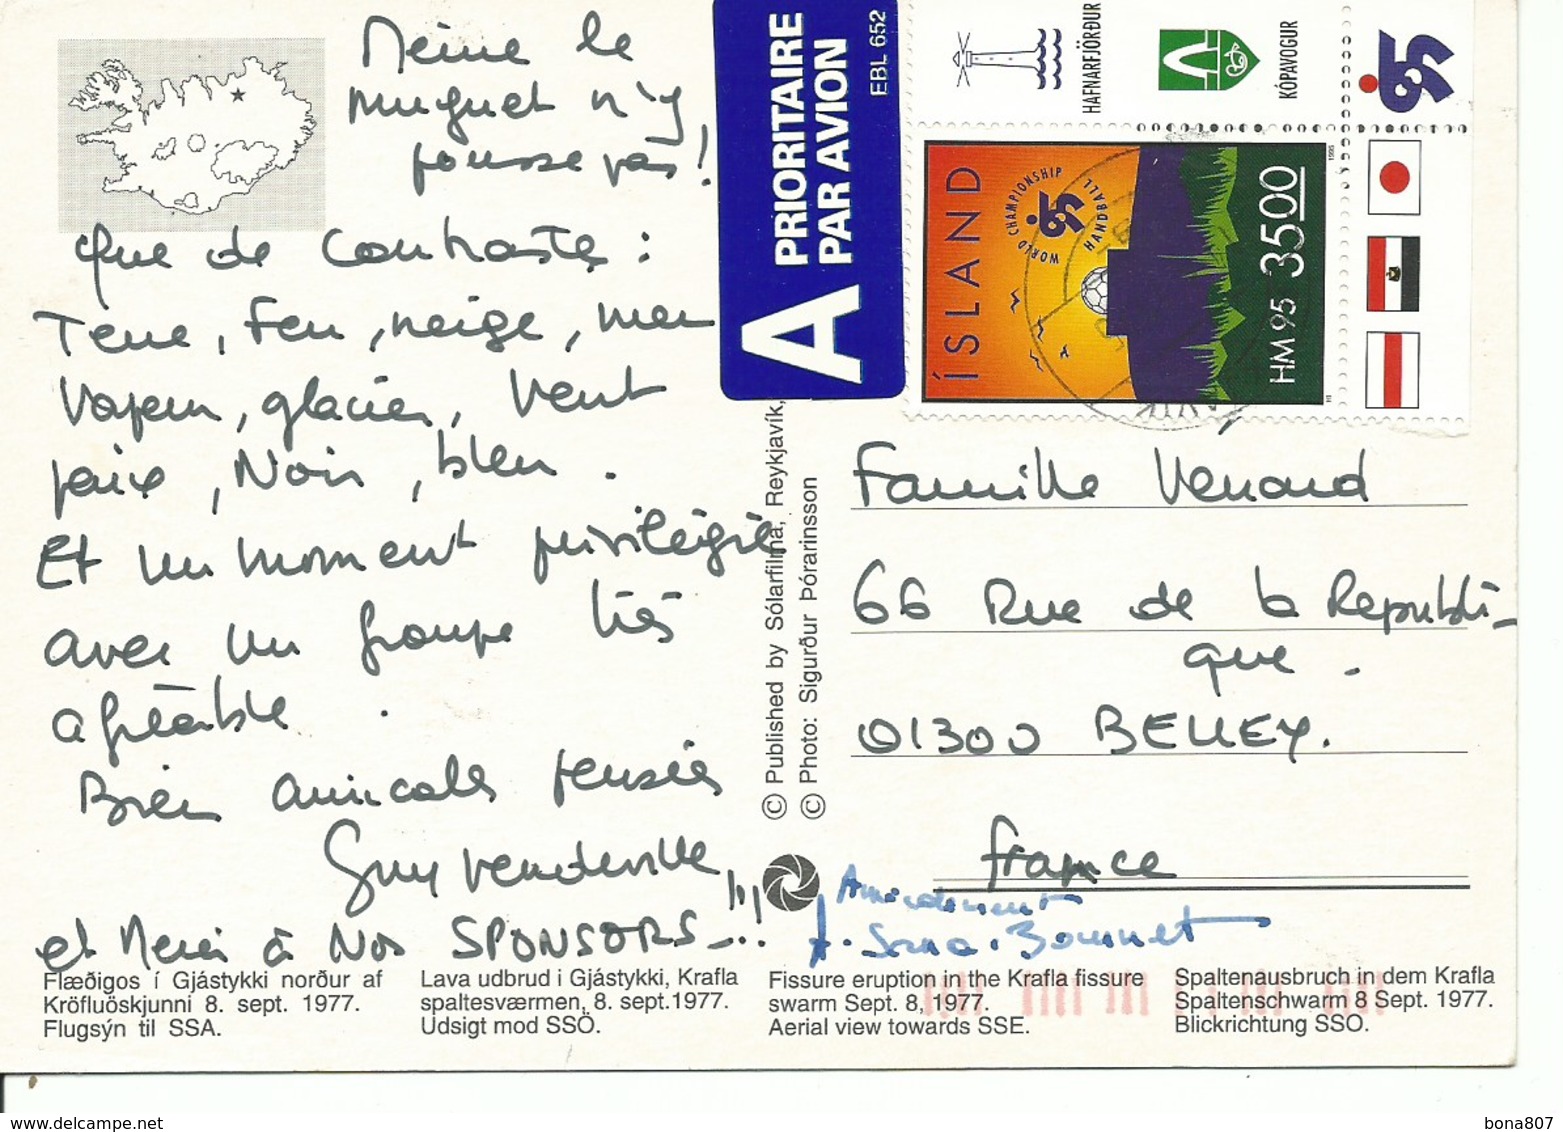 Même le
muguet n'y
pousse pas !
Que de Contrastes :
Terre, Feu, neige, mer
Vapeur, glacier, Vent
paix, Noir, bleu.
Et un moment privilégié
avec un groupe très
agréable.
Bien amicales pensées
Guy Vendeville
et Merci à Nos SPONSORS_!!!
PRIORITAIRE
PAR AVION
A
EBL 652
HAFNARFJÖRÐUR
KÓPAVOGUR
95
ÍSLAND
WORLD CHAMPIONSHIP
95
HANDBALL
HM 95 3500
1995
© Published by Sólarfilma, Reykjavík,
© Photo: Sigurður Þórarinsson
Famille Vénard
66 Rue de la Republi-
que.
01300 BELLEY.
France
Amicalement
Bonnet
Flæðigos í Gjástykki norður af
Kröfluöskjunni 8. sept. 1977.
Flugsýn til SSA.
Lava udbrud i Gjástykki, Krafla
spaltesværmen, 8. sept.1977.
Udsigt mod SSÖ.
Fissure eruption in the Krafla fissure
swarm Sept. 8, 1977.
Aerial view towards SSE.
Spaltenausbruch in dem Krafla
Spaltenschwarm 8 Sept. 1977.
Blickrichtung SSO.
www.delcampe.net
bona807